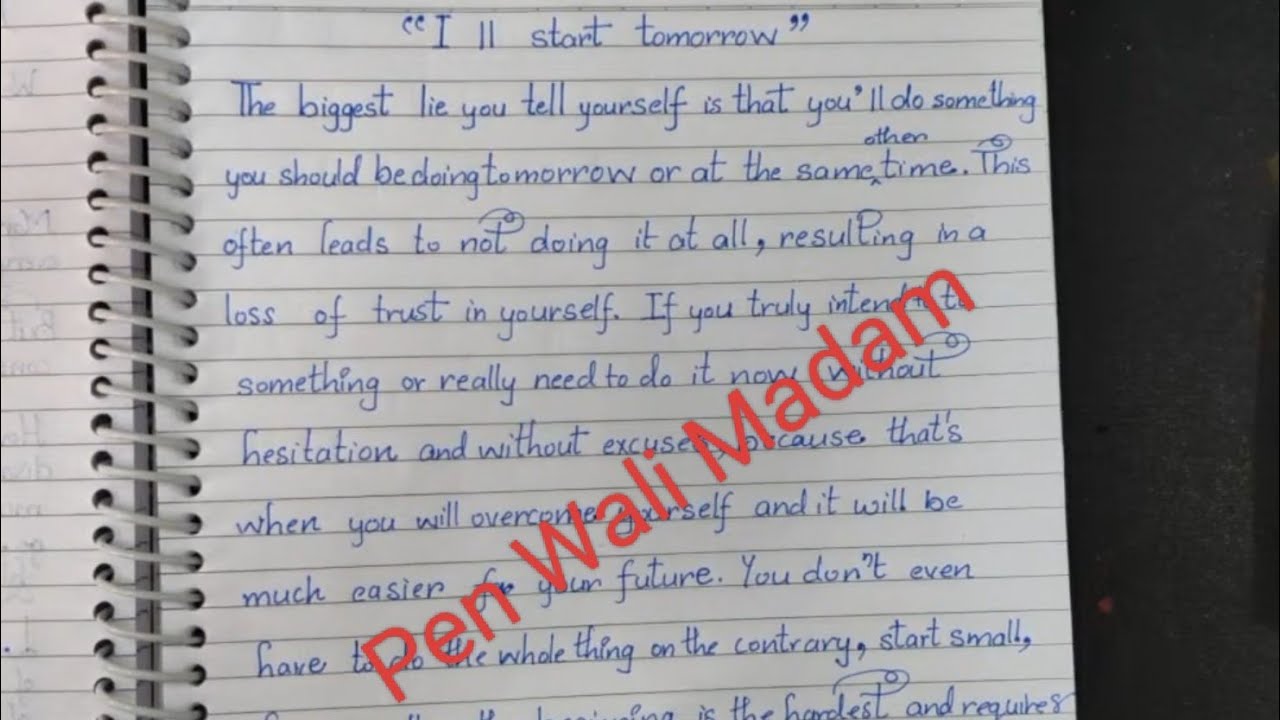 “I ll start tomorrow”
The biggest lie you tell yourself is that you'll do something
other
you should be doing tomorrow or at the same time. This
often leads to not doing it at all, resulting in a
loss of trust in yourself. If you truly intend to
something or really need to do it now, without
hesitation and without excuses, because that's
when you will overcome yourself and it will be
much easier for your future. You don't even
have to do the whole thing on the contrary, start small,
beginning is the hardest and requires
Pen Wali Madam